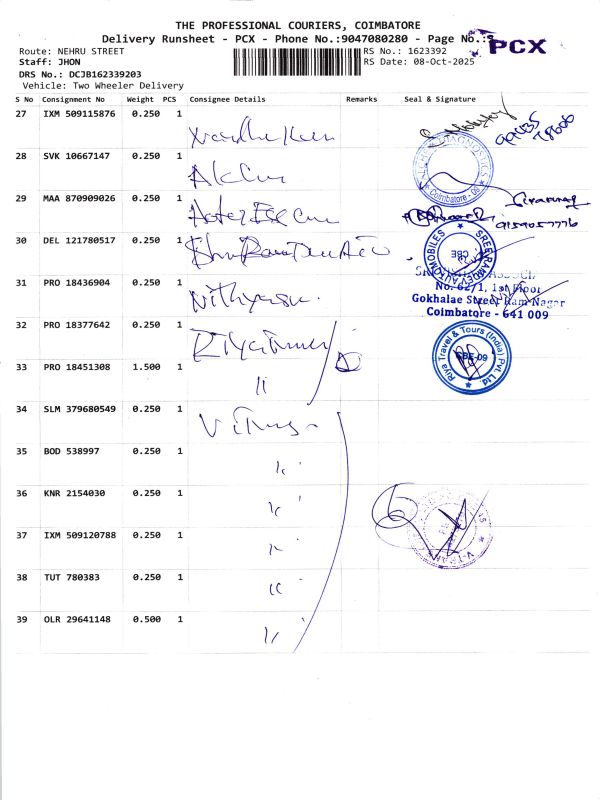 THE PROFESSIONAL COURIERS, COIMBATORE
Delivery Runsheet - PCX - Phone No.:9047080280 - Page No.:
PCX
Route: NEHRU STREET
RS No.: 1623392
Staff: JHON
RS Date: 08-Oct-2025
DRS No.: DCJB162339203
Vehicle: Two Wheeler Delivery
S No Consignment No Weight PCS Consignee Details Remarks Seal & Signature
27 IXM 509115876 0.250 1
28 SVK 10667147 0.250 1
DIAGNOSTICS
Coimbatore
29 MAA 870909026 0.250 1
9159057776
30 DEL 121780517 0.250 1
AUTOMOBILES
CBE
31 PRO 18436904 0.250 1 Nithyasu
No. 62/1, 1st Floor
Gokhalae Street Ram Nagar
Coimbatore - 641 009
32 PRO 18377642 0.250 1
Riya Travel & Tours (India) Pvt. Ltd
CBE-09
33 PRO 18451308 1.500 1 "
34 SLM 379680549 0.250 1
35 BOD 538997 0.250 1 "
36 KNR 2154030 0.250 1 "
37 IXM 509120788 0.250 1 "
38 TUT 780383 0.250 1 "
39 OLR 29641148 0.500 1 "